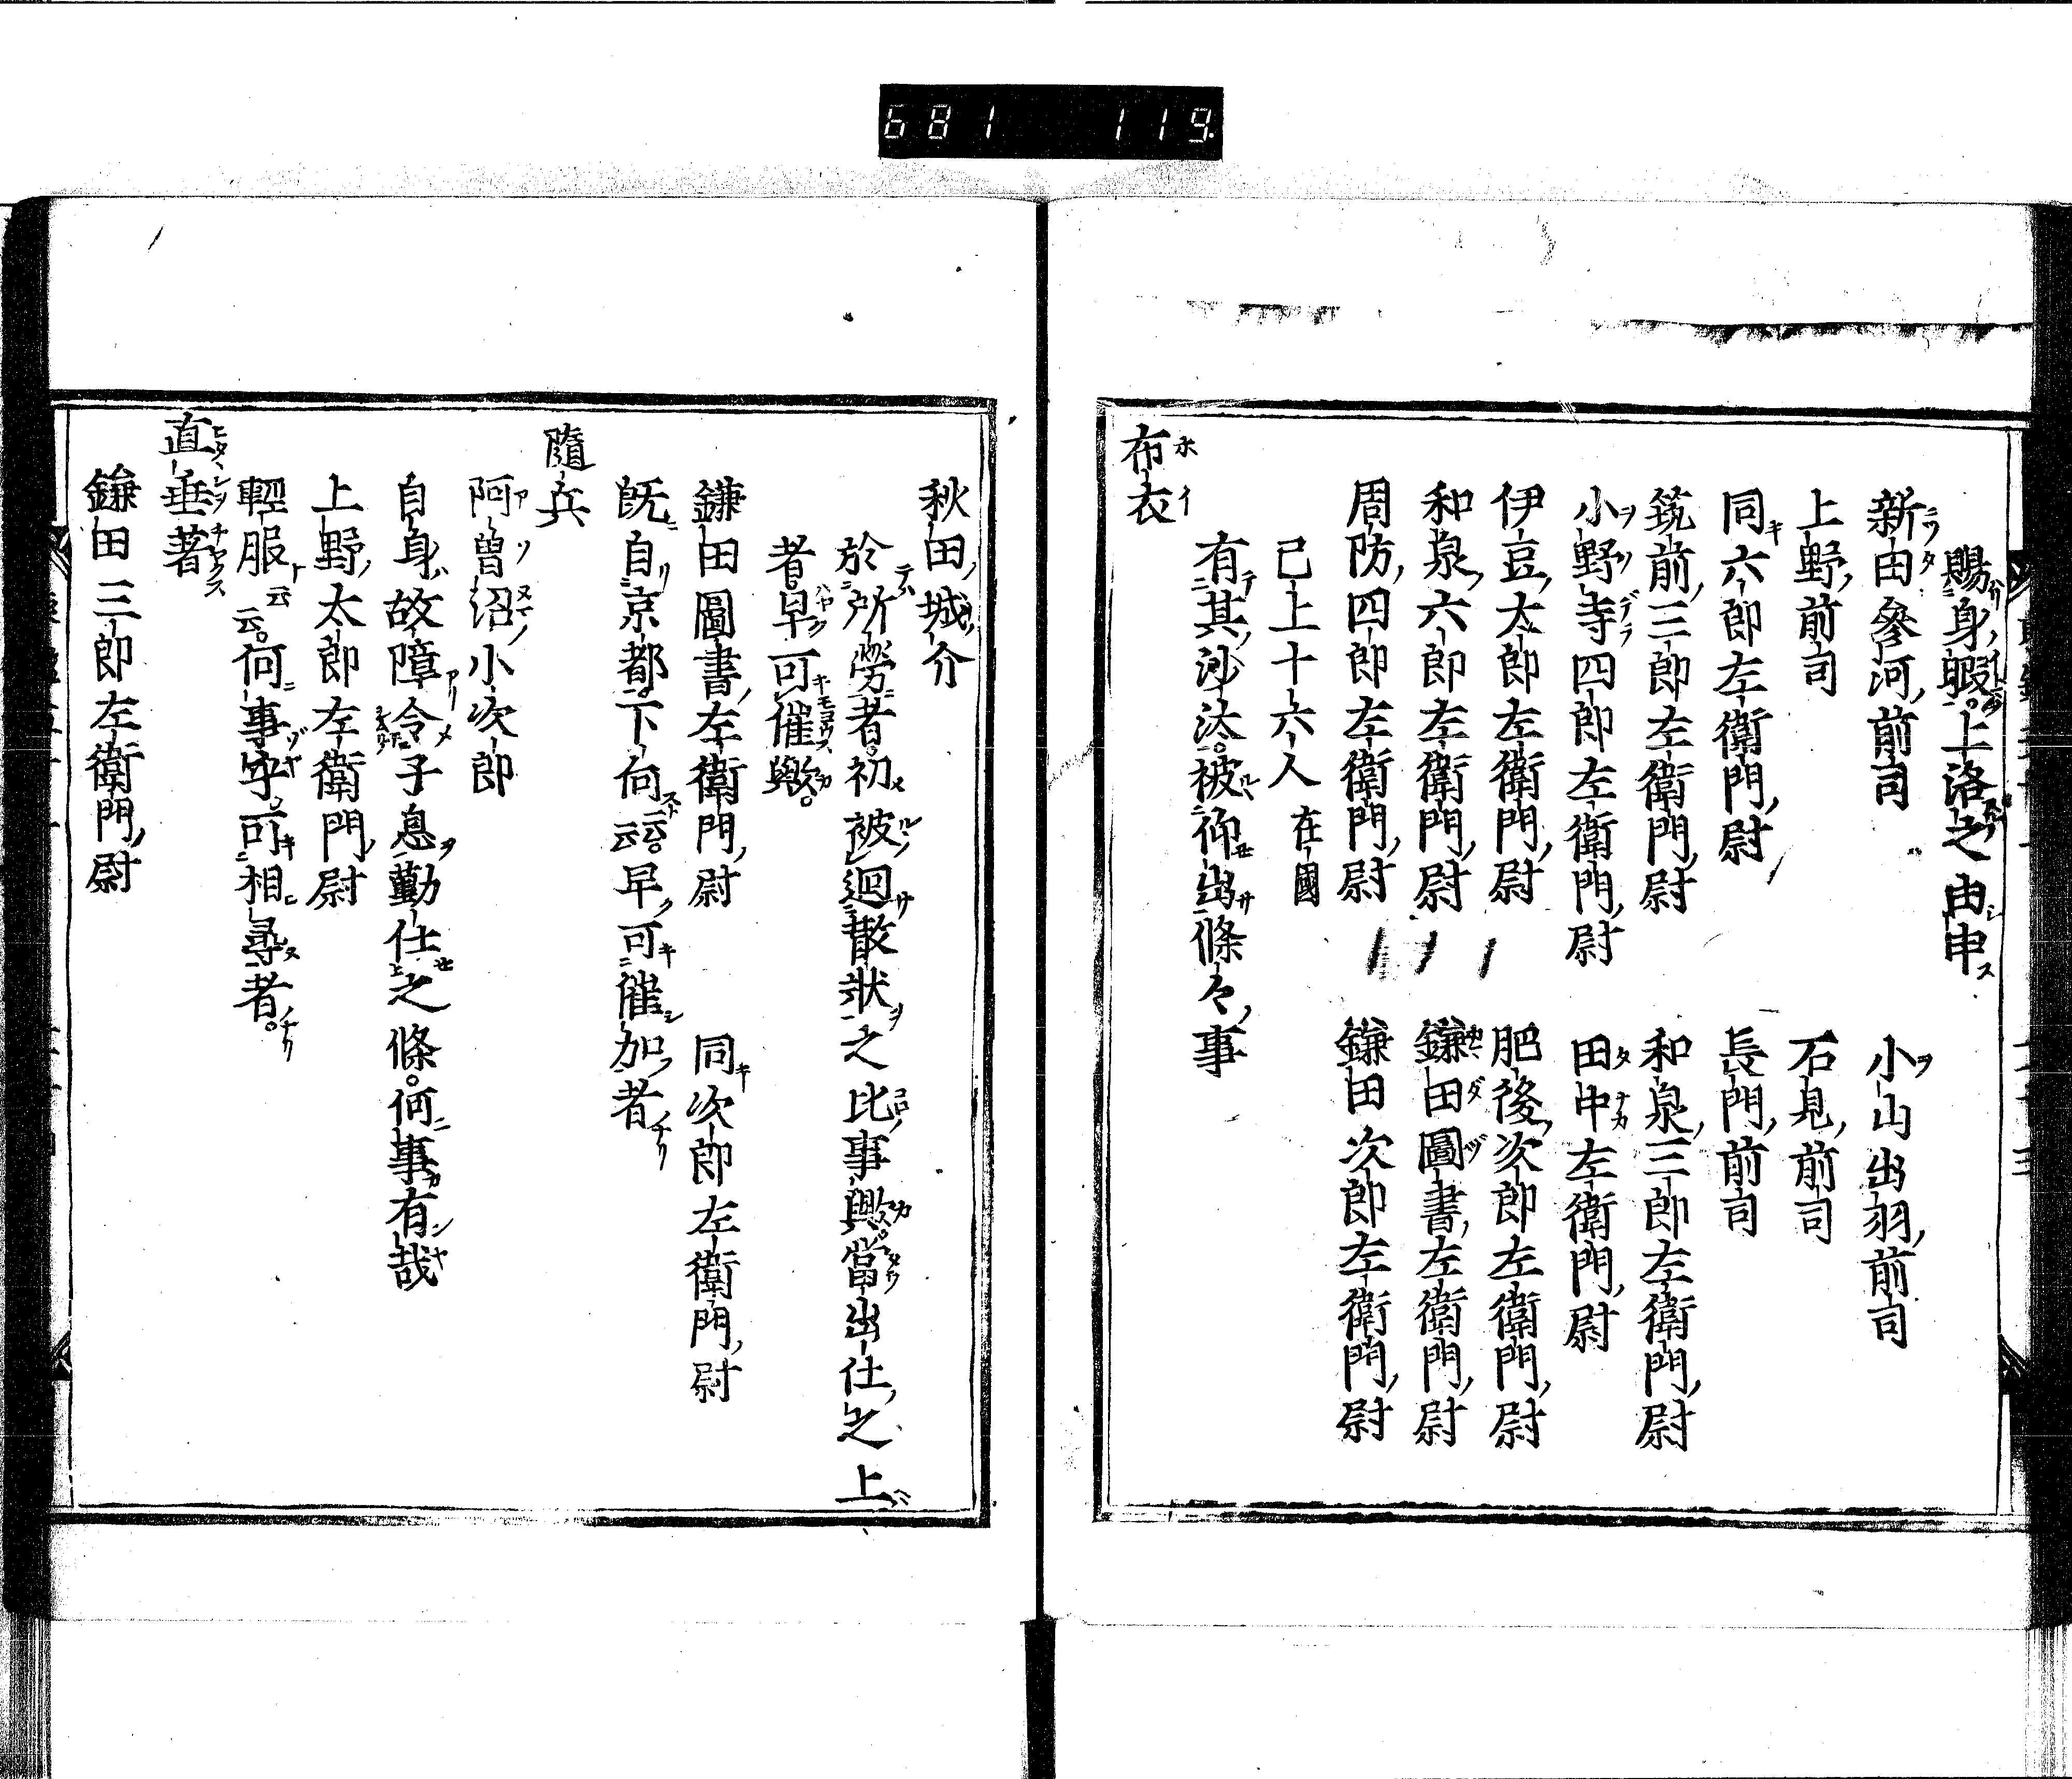 681 119
賜身暇上洛之由申
新田參河前司 小山出羽前司
上野前司 石見前司
同六郎左衛門尉 長門前司
筑前三郎左衛門尉 和泉三郎左衛門尉
小野寺四郎左衛門尉 田中左衛門尉
伊豆太郎左衛門尉 肥後次郎左衛門尉
和泉六郎左衛門尉 鎌田圖書左衛門尉
周防四郎左衛門尉 鎌田次郎左衛門尉
已上十六人 在國
有其沙汰被仰出條々事
布衣
秋田城介
於所勞者初被廻散状之比事歟當出仕之上
者早可催歟
鎌田圖書左衛門尉 同次郎左衛門尉
既自京都下向云云早可催加者
隨兵
阿曽沼小次郎
自身故障令子息勤仕之條何事有哉
上野太郎左衛門尉
輕服云云何事乎可相尋者
直垂著
鎌田三郎左衛門尉